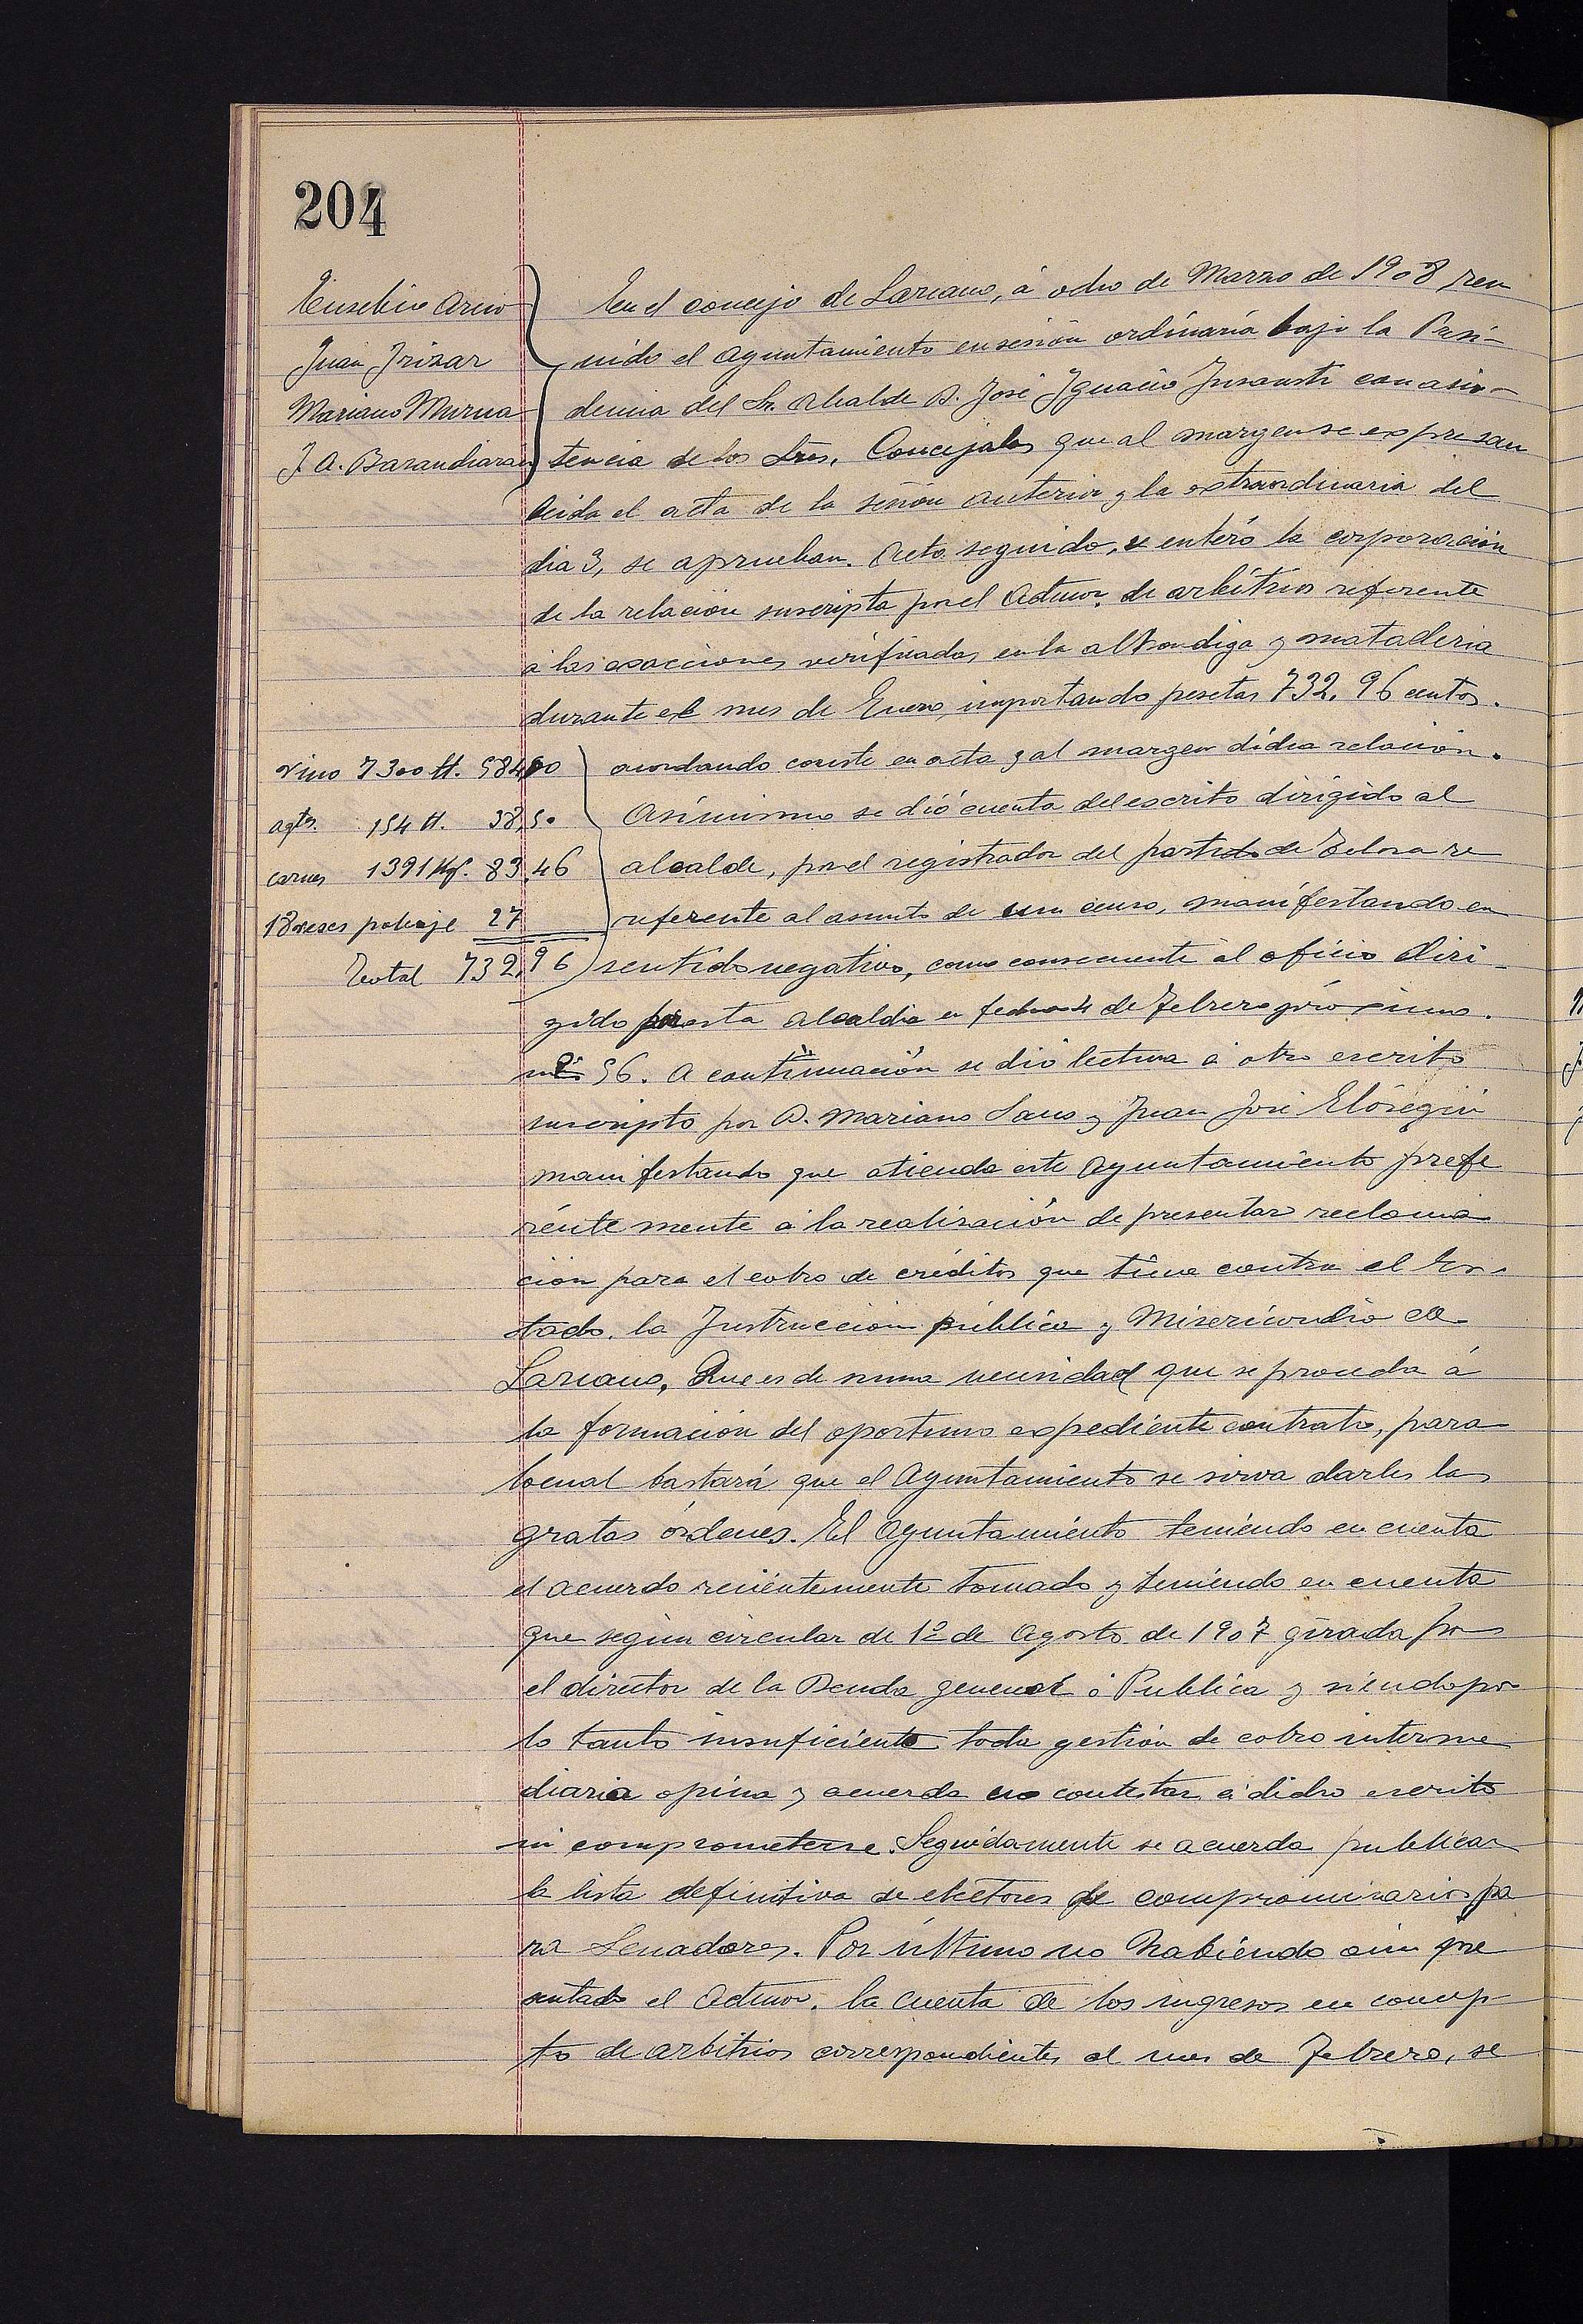 204
Eusebio Arcio
Juan Irizar
Mariano Murua
J. A. Barandiaran
En el concejo de Lazcano, á ocho de Marzo de 1908 reu
nido el Ayuntamiento en sesión ordinaria bajo la Presi-
dencia del Sr. Alcalde D. José Ignacio Insausti con asis-
tencia de los Sres. Concejales que al margen se expresan
leida el acta de la sesión anterior y la extraordinaria del
dia 3, se aprueban. Acto seguido, se enteró la corporación
de la relación suscripta por el Admor. de arbitrios referente
á las exacciones verificadas en la alhondiga y mataderia
durante el mes de Enero, importando pesetas 732,96 centos.
acordando conste en acta y al margen dicha relación.
vino 7300 lt. 584,00
agtes. 154 lt. 38,50
carnes 1391 Kg. 83,46
18 reses poteaje 27
Total 732,96
Asimismo se dió cuenta del escrito dirigido al
alcalde, por el registrador del partido de Tolosa re
referente al asunto de un censo, manifestando en
sentido negativo, como consecuente al oficio diri-
gido por esta Alcaldia en fecha 4 de Febrero próximo.
nº 56. A continuación se dió lectura á otro escrito
suscripto por D. Mariano Sans y Juan José Elósegui
manifestando que atienda este Ayuntamiento prefe
rentemente á la realización de presentar reclama
ción para el cobro de créditos que tiene contra el Es-
tado, la Instrucción pública y Misericordia de
Lazcano, Que es de suma necesidad que se proceda á
la formación del oportuno expediente contrato, para
lo cual bastará que el Ayuntamiento se sirva darles las
gratas órdenes. El Ayuntamiento teniendo en cuenta
el acuerdo recientemente tomado y teniendo en cuenta
que según circular de 1º de Agosto de 1907 girada por
el director de la Deuda general ó Publica y siendo por
lo tanto insuficiente toda gestión de cobro interme
diaria opina y acuerda no contestar á dicho escrito
ni comprometerse. Seguidamente se acuerda publicar
la lista definitiva de electores de compromisarios pa
ra Senadores. Por último no habiendo aún pre
sentado el Admor. la cuenta de los ingresos en concep
to de arbitrios correspondientes al mes de Febrero, se